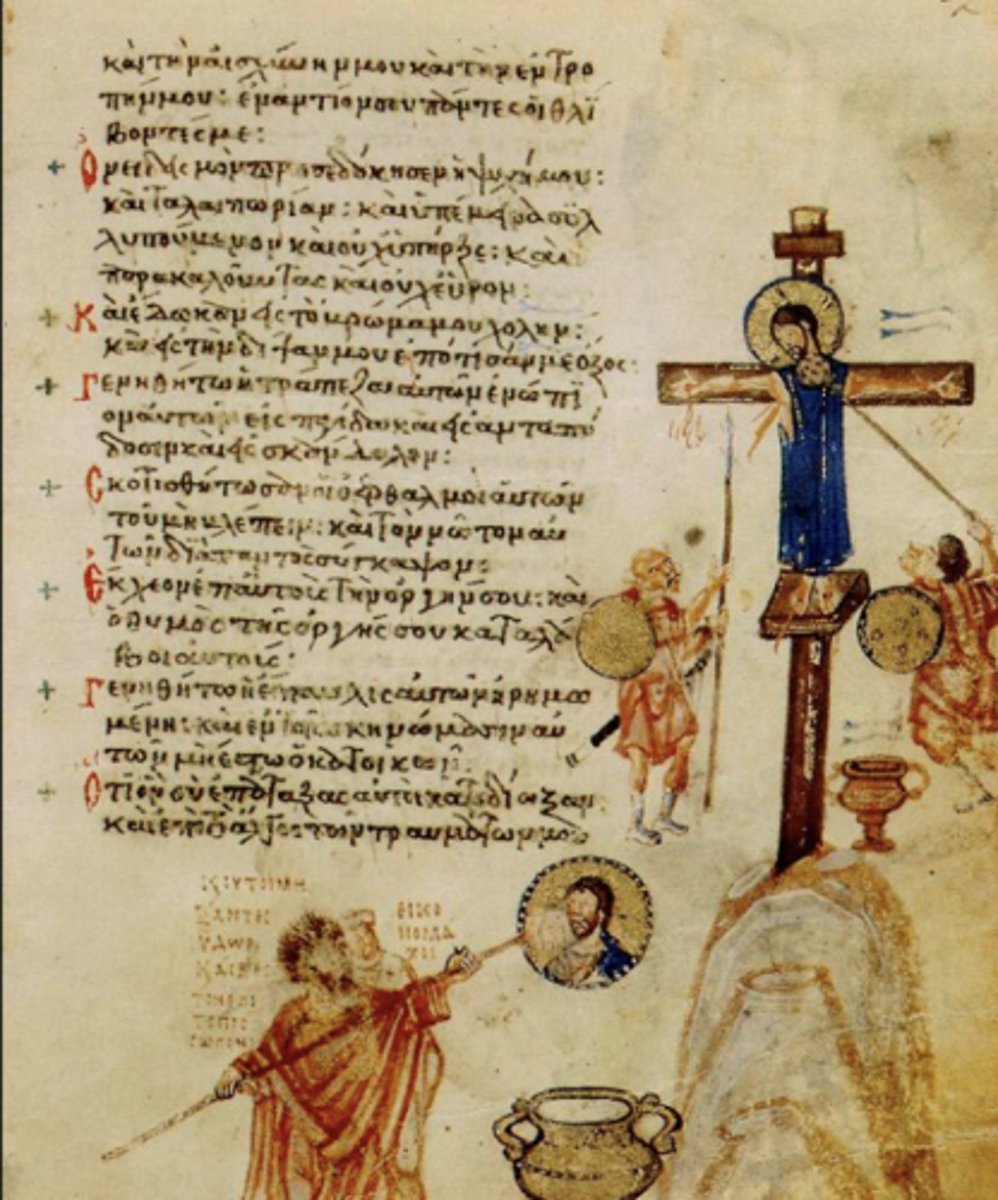 καὶ τὴν αἰσχύνην μου καὶ τὴν ἐντρο
πήν μου: ἐναντίον σου πάντες οἱ θλί
βοντές με:
Ὀνειδισμὸν προσεδόκησεν ἡ ψυχή μου:
καὶ ταλαιπωρίαν: καὶ ὑπέμεινα συλ
λυπούμενον καὶ οὐχ ὑπῆρξε: καὶ
παρακαλοῦντας καὶ οὐχ εὗρον:
Καὶ ἔδωκαν εἰς τὸ βρῶμά μου χολήν:
καὶ εἰς τὴν δίψαν μου ἐπότισάν με ὄξος:
Γενηθήτω ἡ τράπεζα αὐτῶν ἐνώπι
ον αὐτῶν εἰς παγίδα καὶ εἰς ἀνταπό
δοσιν καὶ εἰς σκάνδαλον:
Σκοτισθήτωσαν οἱ ὀφθαλμοὶ αὐτῶν
τοῦ μὴ βλέπειν: καὶ τὸν νῶτον αὐ
τῶν διὰ παντὸς σύγκαμψον:
Ἔκχεον ἐπ αὐτοὺς τὴν ὀργήν σου: καὶ
ὁ θυμὸς τῆς ὀργῆς σου καταλά
βοι αὐτούς:
Γενηθήτω ἡ ἔπαυλις αὐτῶν ἠρημω
μένη: καὶ ἐν τοῖς σκηνώμασιν αὐ
τῶν μὴ ἔστω ὁ κατοικῶν:
Ὅτι ὃν σὺ ἐπάταξας αὐτοὶ κατεδίωξαν:
καὶ ἐπὶ τὸ ἄλγος τῶν τραυμάτων μου
ΥΔΩΡ